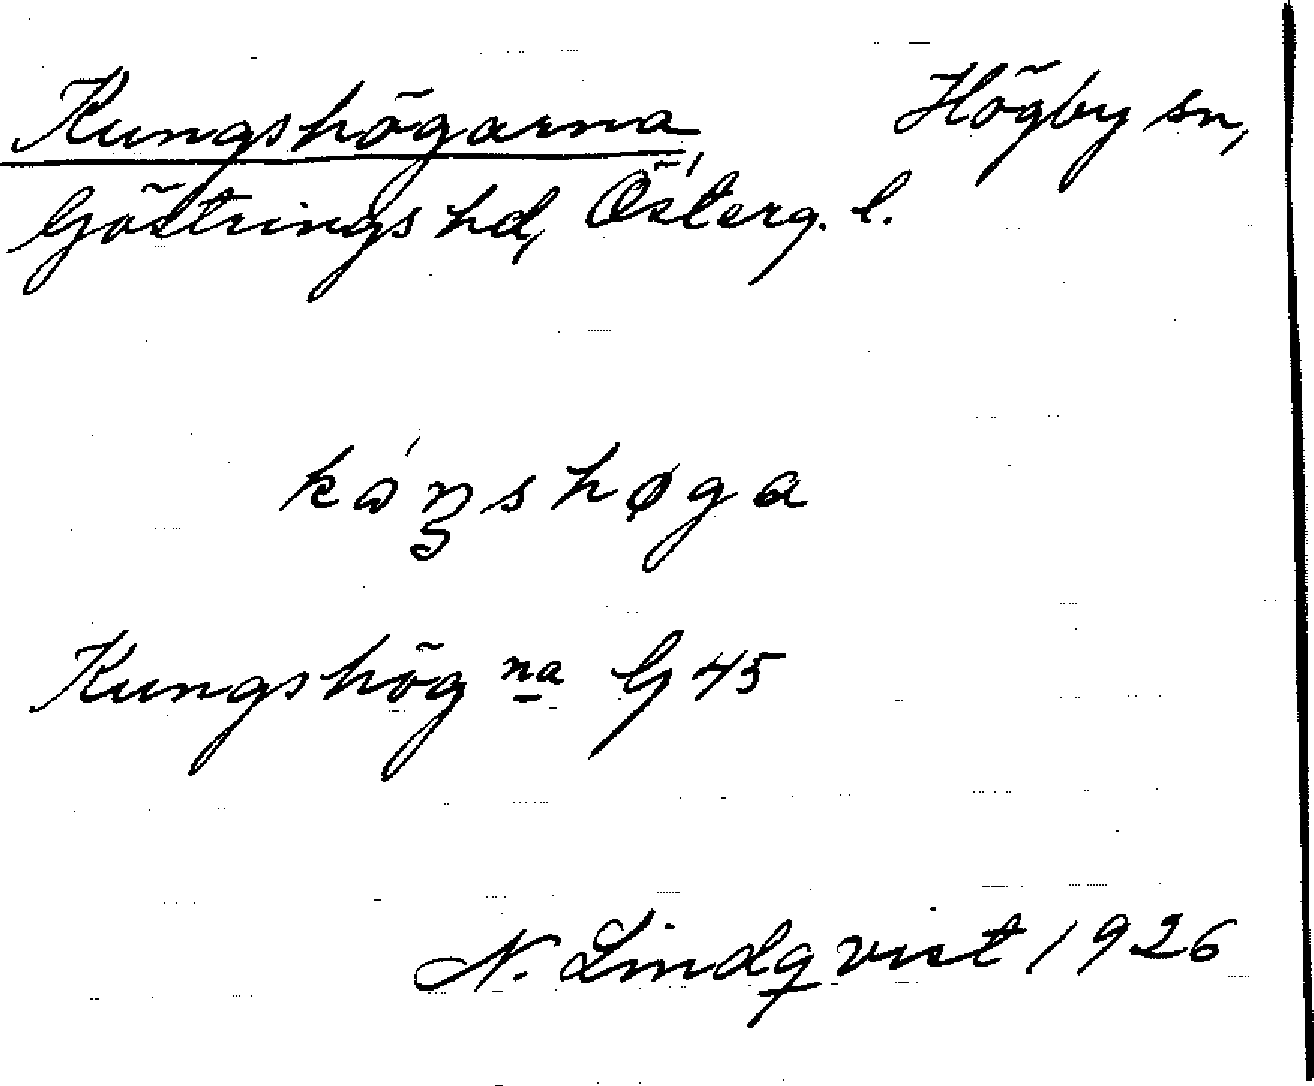 Kungshögarna Högby sn,
Göstrings hd, Österg. l.
kóŋshøga
Kungshög na G 45
N. Lindqvist 1926